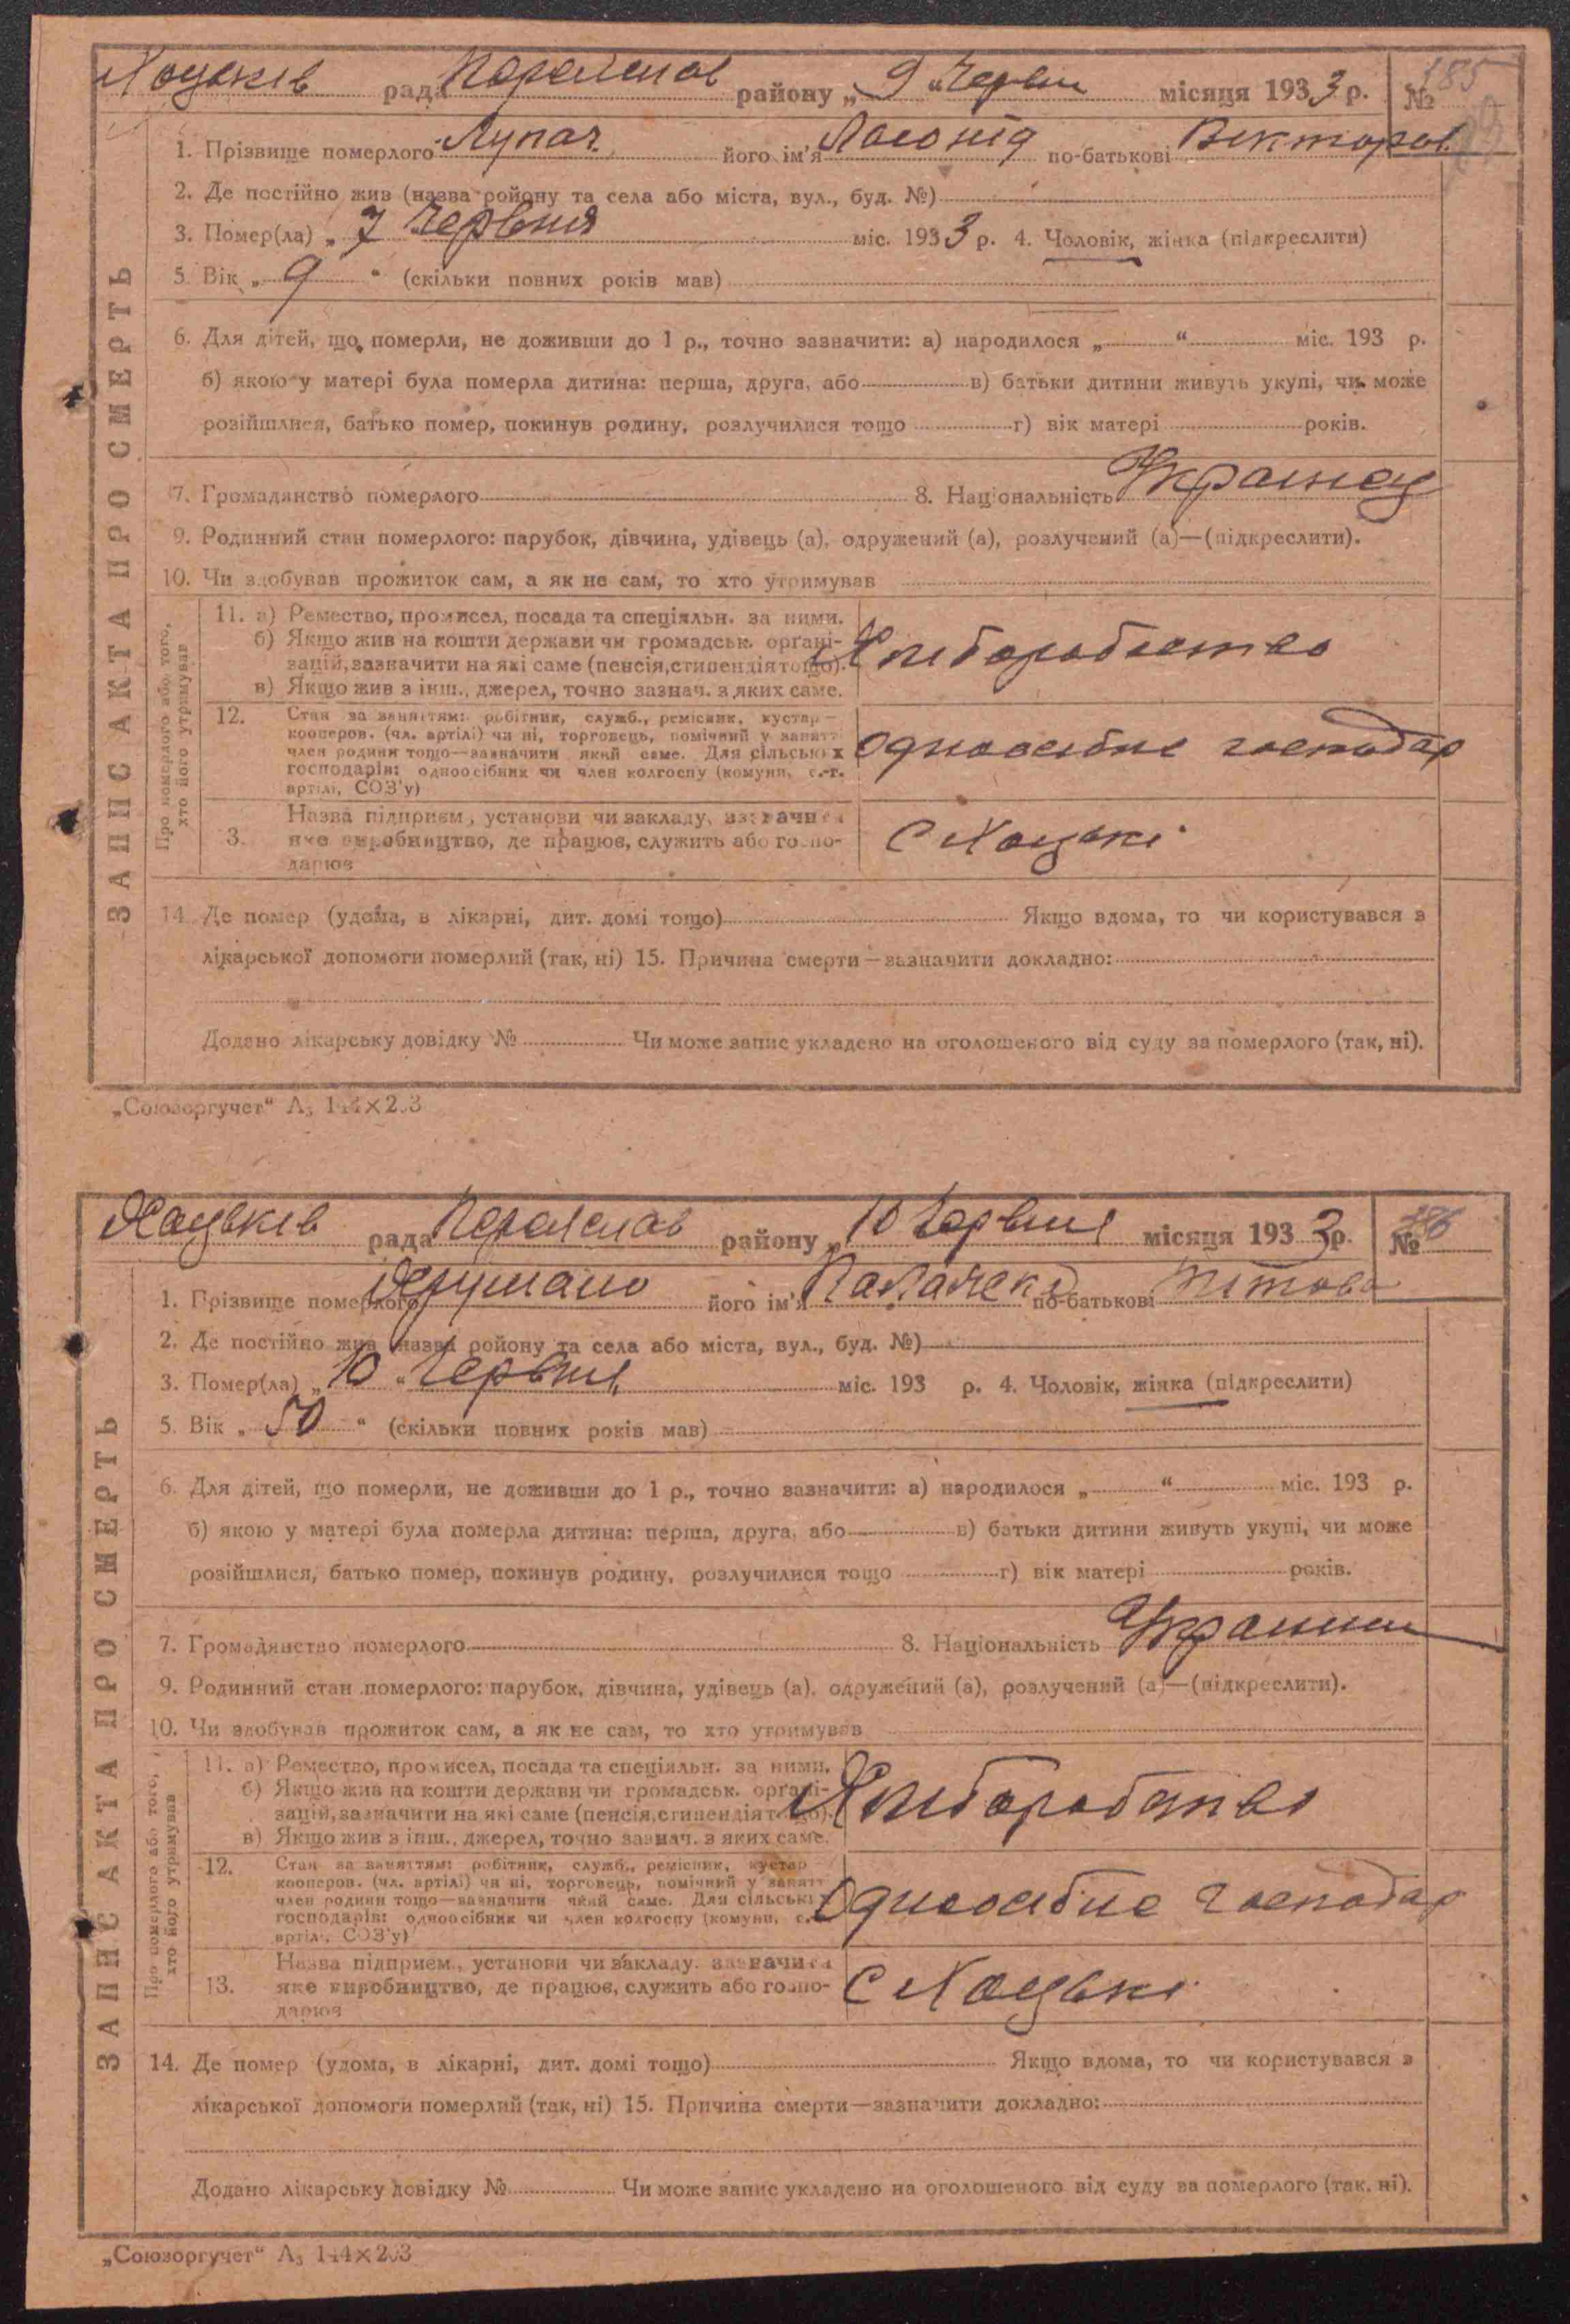 Хоцьків рада Переяслав району „ 9 “ Червня місяця 1933 р. № 185
ЗАПИС АКТА ПРО СМЕРТЬ
1. Прізвище померлого Лупач його ім'я Леонід по-батькові Вікторов
2. Де постійно жив (назва ройону та села або міста, вул., буд. №)
3. Помер(ла) „ 7 Червня міс. 1933 р. 4. Чоловік, жінка (підкреслити)
5. Вік „ 9 “ (скільки повних років мав)
6. Для дітей, що померли, не доживши до 1 р., точно зазначити: а) народилося „ “ міс. 193 р.
б) якою у матері була померла дитина: перша, друга, або в) батьки дитини живуть укупі, чи може
розійшлися, батько помер, покинув родину, розлучилися тощо г) вік матері років.
7. Громадянство померлого 8. Національність Украінец
9. Родинний стан померлого: парубок, дівчина, удівець (а), одружений (а), розлучений (а)—(підкреслити).
10. Чи здобував прожиток сам, а як не сам, то хто утримував
Про померлого або того,
хто його утримував
11. а) Ремество, промисел, посада та спеціяльн. за ними.
б) Якщо жив на кошти держави чи громадськ. орґані-
зацій, зазначити на які саме (пенсія, стипендія тощо).
в) Якщо жив з інш., джерел, точно зазнач. з яких саме.
Хліборобство
12. Стан за заняттям: робітник, служб., ремісник, кустар—
кооперов. (чл. артілі) чи ні, торговець, помічний у занятт
член родини тощо—зазначити який саме. Для сільських
господарів: одноосібник чи член колгоспу (комуни, с.-г.
артілі, СОЗ'у)
Одноосібне господар
3. Назва підприєм., установи чи закладу, зазначити
яке виробництво, де працює, служить або госпо-
дарює
С Хоцьки
14. Де помер (удома, в лікарні, дит. домі тощо) Якщо вдома, то чи користувався з
лікарської допомоги померлий (так, ні) 15. Причина смерти—зазначити докладно:
Додано лікарську довідку № Чи може запис укладено на оголошеного від суду за померлого (так, ні).
„Союзоргучет“ А₅ 144×203
Хоцьків рада Переяслав району „ 10 Червня місяця 1933 р. № 186
ЗАПИС АКТА ПРО СМЕРТЬ
1. Прізвище померлого його ім'я по-батькові Тітова
2. Де постійно жив (назва ройону та села або міста, вул., буд. №)
3. Помер(ла) „ 10 “ Червня міс. 193 р. 4. Чоловік, жінка (підкреслити)
5. Вік „ 50 “ (скільки повних років мав)
6. Для дітей, що померли, не доживши до 1 р., точно зазначити: а) народилося „ “ міс. 193 р.
б) якою у матері була померла дитина: перша, друга, або в) батьки дитини живуть укупі, чи може
розійшлися, батько помер, покинув родину, розлучилися тощо г) вік матері років.
7. Громадянство померлого 8. Національність
9. Родинний стан померлого: парубок, дівчина, удівець (а), одружений (а), розлучений (а)—(підкреслити).
10. Чи здобував прожиток сам, а як не сам, то хто утримував
Про померлого або того,
хто його утримував
11. а) Ремество, промисел, посада та спеціяльн. за ними.
б) Якщо жив на кошти держави чи громадськ. орґані-
зацій, зазначити на які саме (пенсія, стипендія тощо).
в) Якщо жив з інш., джерел, точно зазнач. з яких саме.
Хліборобство
12. Стан за заняттям: робітник, служб., ремісник, кустар
кооперов. (чл. артілі) чи ні, торговець, помічний у занятт
член родини тощо—зазначити який саме. Для сільських
господарів: одноосібник чи член колгоспу (комуни, с.-г.
артілі, СОЗ'у)
Одноосібне господар
13. Назва підприєм., установи чи закладу, зазначити
яке виробництво, де працює, служить або госпо-
дарює
С Хоцьки
14. Де помер (удома, в лікарні, дит. домі тощо) Якщо вдома, то чи користувався з
лікарської допомоги померлий (так, ні) 15. Причина смерти—зазначити докладно:
Додано лікарську довідку № Чи може запис укладено на оголошеного від суду за померлого (так, ні).
„Союзоргучет“ А₅ 144×203